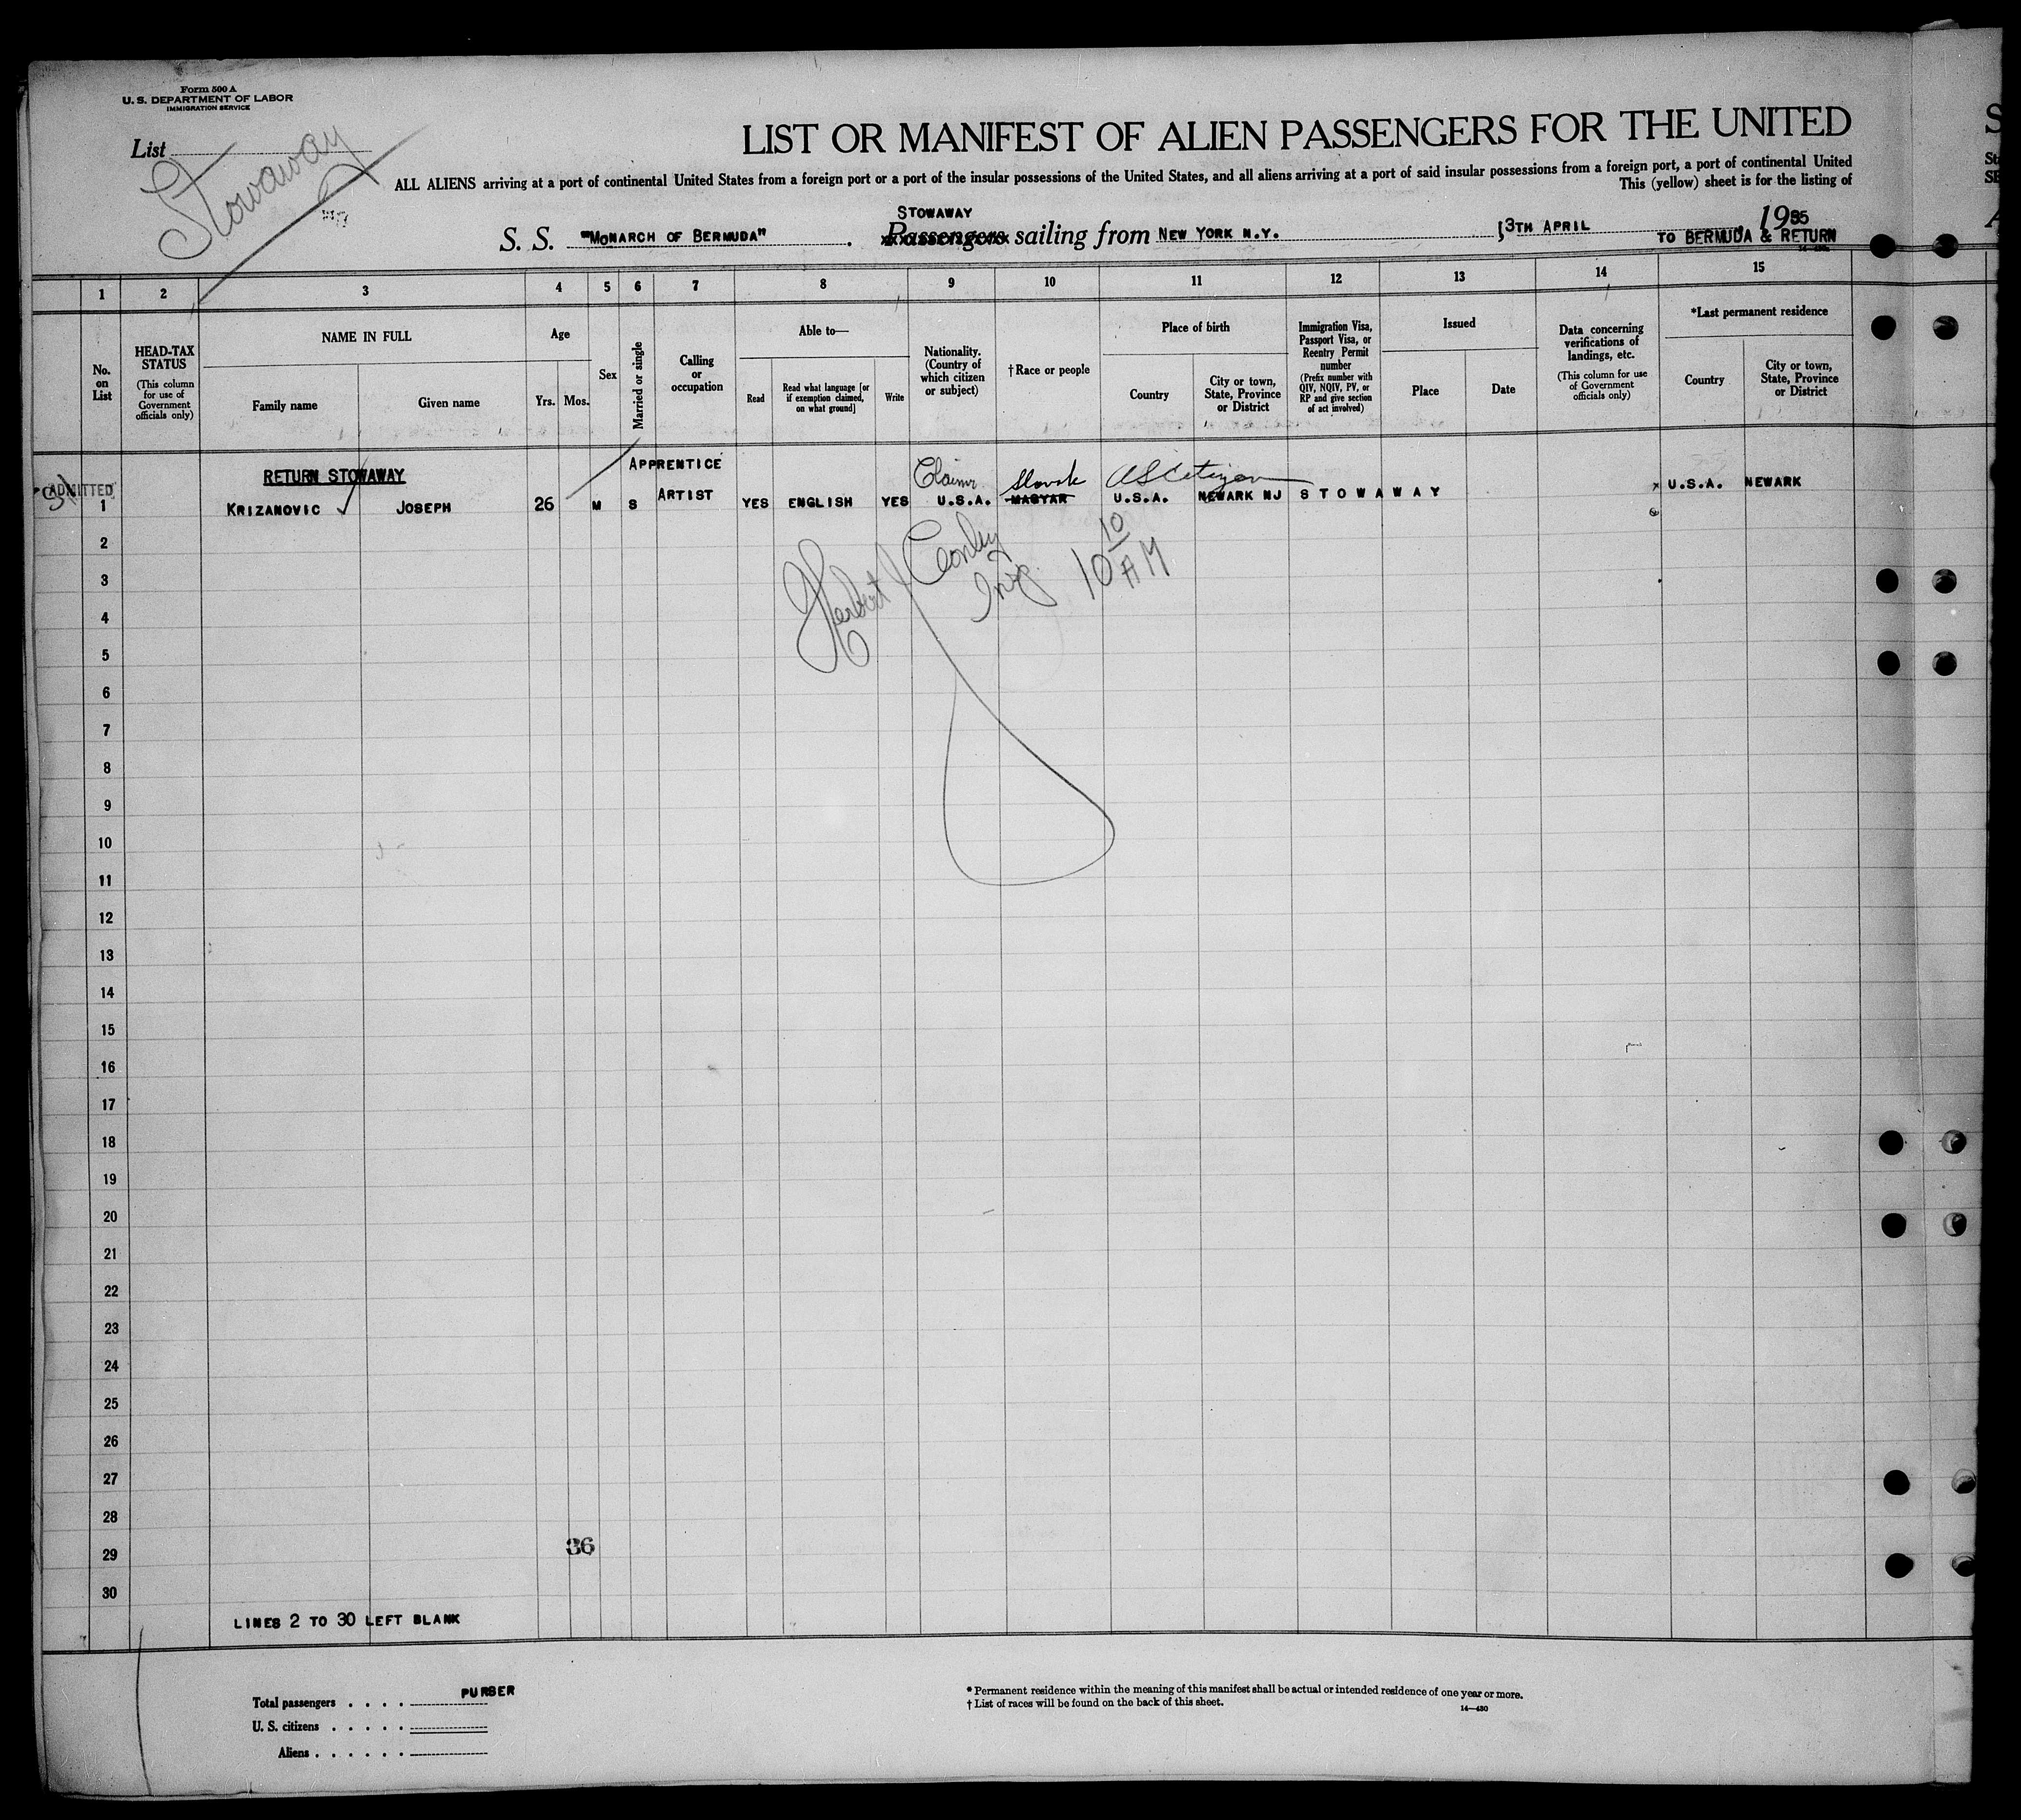 Form 500 A
U. S. DEPARTMENT OF LABOR
IMMIGRATION SERVICE
List
Stowaway
LIST OR MANIFEST OF ALIEN PASSENGERS FOR THE UNITED
ALL ALIENS arriving at a port of continental United States from a foreign port or a port of the insular possessions of the United States, and all aliens arriving at a port of said insular possessions from a foreign port, a port of continental United
This (yellow) sheet is for the listing of
STOWAWAY
S. S. "MONARCH OF BERMUDA" Passengers sailing from NEW YORK N.Y. 13TH APRIL, 1935
TO BERMUDA & RETURN
1 2 3 4 5 6 7 8 9 10 11 12 13 14 15
No. on List
HEAD-TAX STATUS
(This column for use of Government officials only)
NAME IN FULL
Family name
Given name
Age
Yrs.
Mos.
Sex
Married or single
Calling or occupation
Able to—
Read
Read what language [or if exemption claimed, on what ground]
Write
Nationality. (Country of which citizen or subject)
†Race or people
Place of birth
Country
City or town, State, Province or District
Immigration Visa, Passport Visa, or Reentry Permit number
(Prefix number with QIV, NQIV, PV, or RP and give section of act involved)
Issued
Place
Date
Data concerning verifications of landings, etc.
(This column for use of Government officials only)
*Last permanent residence
Country
City or town, State, Province or District
RETURN STOWAWAY
APPRENTICE
Claims
Slovak
US Citizen
ADMITTED
1 KRIZANOVIC JOSEPH 26 M S ARTIST YES ENGLISH YES U.S.A. MAGYAR U.S.A. NEWARK NJ STOWAWAY x U.S.A. NEWARK
2
Herbert Conley
Insp.
10 10 AM
3
4
5
6
7
8
9
10
11
12
13
14
15
16
17
18
19
20
21
22
23
24
25
26
27
28
36
29
30
LINES 2 TO 30 LEFT BLANK
PURSER
Total passengers . . . .
U. S. citizens . . . . .
Aliens . . . . . .
* Permanent residence within the meaning of this manifest shall be actual or intended residence of one year or more.
† List of races will be found on the back of this sheet.
14—430